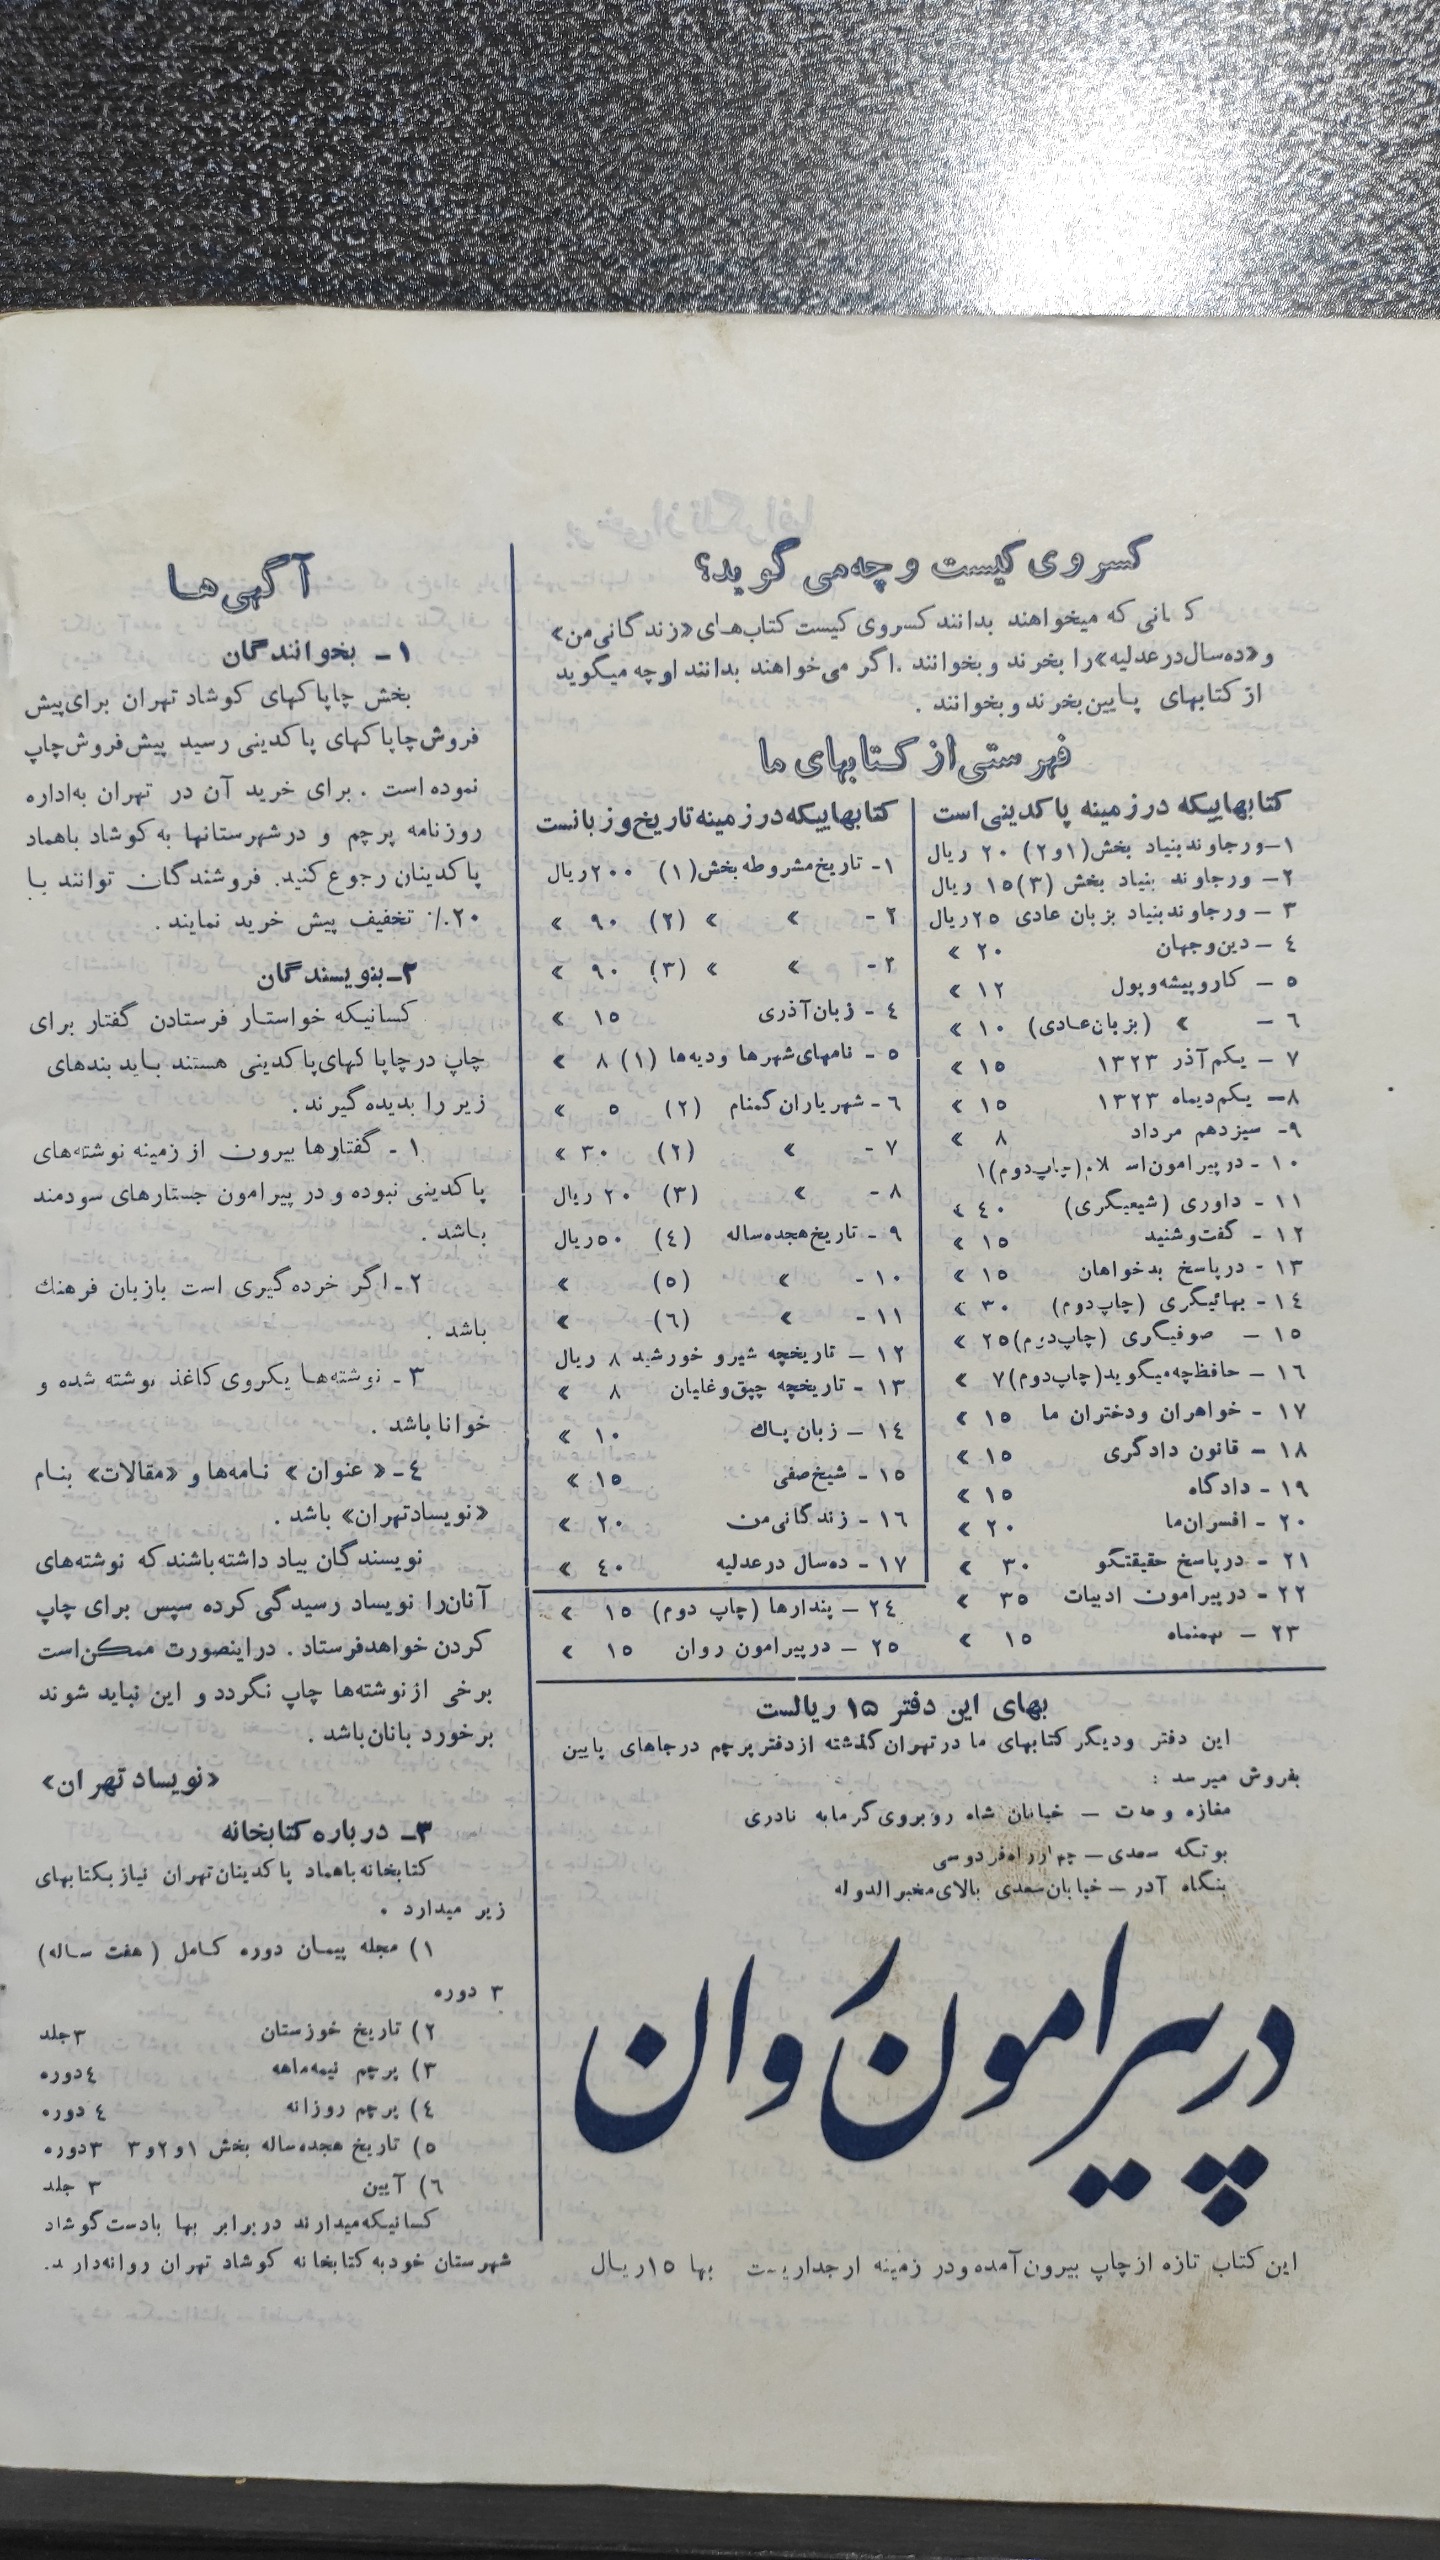 کسروی کیست و چه می گوید؟
که میخواهند بدانند کسروی کیست کتاب‌های «زندگانی من»
و «ده سال در عدلیه» را بخرند و بخوانند . اگر می‌خواهند بدانند او چه میگوید
از کتابهای پایین بخرند و بخوانند .
فهرستی از کتابهای ما
کتابهاییکه در زمینه پاکدینی است
۱- ورجاوند بنیاد بخش (۱و۲) ۲۰ ریال
۲- ورجاوند بنیاد بخش (۳) ۱۵ ریال
۳ - ورجاوند بنیاد بزبان عادی ۲۵ ریال
٤ - دین و جهان ۲۰ »
۵ - کار و پیشه و پول ۱۲ »
٦ - » (بزبان عادی) ۱۰ »
۷ - یکم آذر ۱۳۲۳ ۱۵ »
۸- یکم دیماه ۱۳۲۳ ۱۵ »
۹- سیزدهم مرداد ۸ »
۱۰ - در پیرامون اسلام (چاپ دوم) ۱
۱۱ - داوری (شیعیگری) ٤۰ »
۱۲ - گفت و شنید ۱۵ »
۱۳ - در پاسخ بدخواهان ۱۵ »
۱٤ - بهائیگری (چاپ دوم) ۳۰ »
۱۵ - صوفیگری (چاپ دوم) ۲۵ »
۱٦ - حافظ چه میگوید (چاپ دوم) ۷ »
۱۷ - خواهران و دختران ما ۱۵ »
۱۸ - قانون دادگری ۱۵ »
۱۹ - دادگاه ۱۵ »
۲۰ - افسران ما ۲۰ »
۲۱ - در پاسخ حقیقتگو ۳۰ »
۲۲ - در پیرامون ادبیات ۳۵ »
۲۳ - بهمنماه ۱۵ »
کتابهاییکه در زمینه تاریخ و زبانست
۱- تاریخ مشروطه بخش (۱) ۲۰۰ ریال
۲ - » » (۲) ۹۰ »
۲ - » » (۳) ۹۰ »
٤ - زبان آذری ۱۵ »
۵ - نامهای شهرها و دیه‌ها (۱) ۸ »
٦ - شهریاران گمنام (۲) ۵ »
۷ - » (۲) ۳۰ »
۸ - » (۳) ۲۰ ریال
۹ - تاریخ هجده ساله (٤) ۵۰ ریال
۱۰ - » (۵) »
۱۱ - » (٦) »
۱۲ - تاریخچه شیر و خورشید ۸ ریال
۱۳ - تاریخچه چپق و غلیان ۸ »
۱٤ - زبان پاك ۱۰ »
۱۵ - شیخ صفی ۱۵ »
۱٦ - زندگانی من ۲۰ »
۱۷ - ده سال در عدلیه ٤۰ »
۲٤ - پندارها (چاپ دوم) ۱۵ »
۲۵ - در پیرامون روان ۱۵ »
بهای این دفتر ۱۵ ریالست
این دفتر و دیگر کتابهای ما در تهران گذشته از دفتر پرچم در جاهای پایین
بفروش میرسد :
مغازه وحدت - خیابان شاه روبروی گرمابه نادری
بوتگه سعدی - چهارراه فردوسی
بنگاه آذر - خیابان سعدی بالای مخبرالدوله
در پیرامون رَوان
این کتاب تازه از چاپ بیرون آمده و در زمینه بها ۱۵ ریال
آگهی‌ها
۱- بخوانندگان
بخش چاپاکهای کوشاد تهران برای پیش
فروش چاپاکهای پاکدینی رسید پیش فروش چاپ
نموده است . برای خرید آن در تهران به اداره
روزنامه پرچم و در شهرستانها به کوشاد باهماد
پاکدینان رجوع کنید. فروشندگان توانند با
۲۰٪ تخفیف پیش خرید نمایند .
۲- بنویسندگان
کسانیکه خواستار فرستادن گفتار برای
چاپ در چاپاکهای پاکدینی هستند باید بندهای
زیر را بدیده گیرند .
۱ - گفتارها بیرون از زمینه نوشته‌های
پاکدینی نبوده و در پیرامون جستارهای سودمند
باشد .
۲- اگر خرده گیری است بازبان فرهنك
باشد .
۳ - نوشته‌ها یکروی کاغذ نوشته شده و
خوانا باشد .
٤- «عنوان» نامه‌ها و «مقالات» بنام
«نویساد تهران» باشد .
نویسندگان بیاد داشته باشند که نوشته‌های
آنان را نویساد رسیدگی کرده سپس برای چاپ
کردن خواهد فرستاد . در اینصورت ممکن است
برخی از نوشته‌ها چاپ نگردد و این نباید شوند
برخورد بانان باشد .
«نویساد تهران»
۳- درباره کتابخانه
کتابخانه باهماد پاکدینان تهران نیاز بکتابهای
زیر میدارد .
۱) مجله پیمان دوره کامل (هفت ساله)
۳ دوره
۲) تاریخ خوزستان ۳ جلد
۳) پرچم نیمه ماهه ٤ دوره
٤) پرچم روزانه ٤ دوره
۵) تاریخ هجده ساله بخش ۱و۲و۳ ۳ دوره
٦) آیین ۳ جلد
کسانیکه میدارند در برابر بها بادست کوشاد
شهرستان خود به کتابخانه کوشاد تهران روانه دارند.